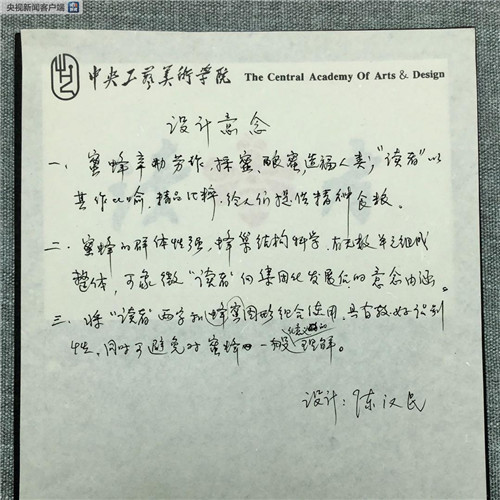 央视新闻客户端
中央工艺美术学院 The Central Academy Of Arts & Design
设计意念
一、蜜蜂辛勤劳作，採蜜、酿蜜，造福人类；“读者”以
其作比喻，精品化粹，给人们提供精神食粮。
二、蜜蜂的群体性强，蜂巢结构科学，有无数单元组成
整体，可象徵“读者”向集团化发展后的意念内涵。
三、採“读者”两字和蜂巢图形组合使用，具有较好识别
性，同时可避免对蜜蜂一般理解。
设计：陈汉民